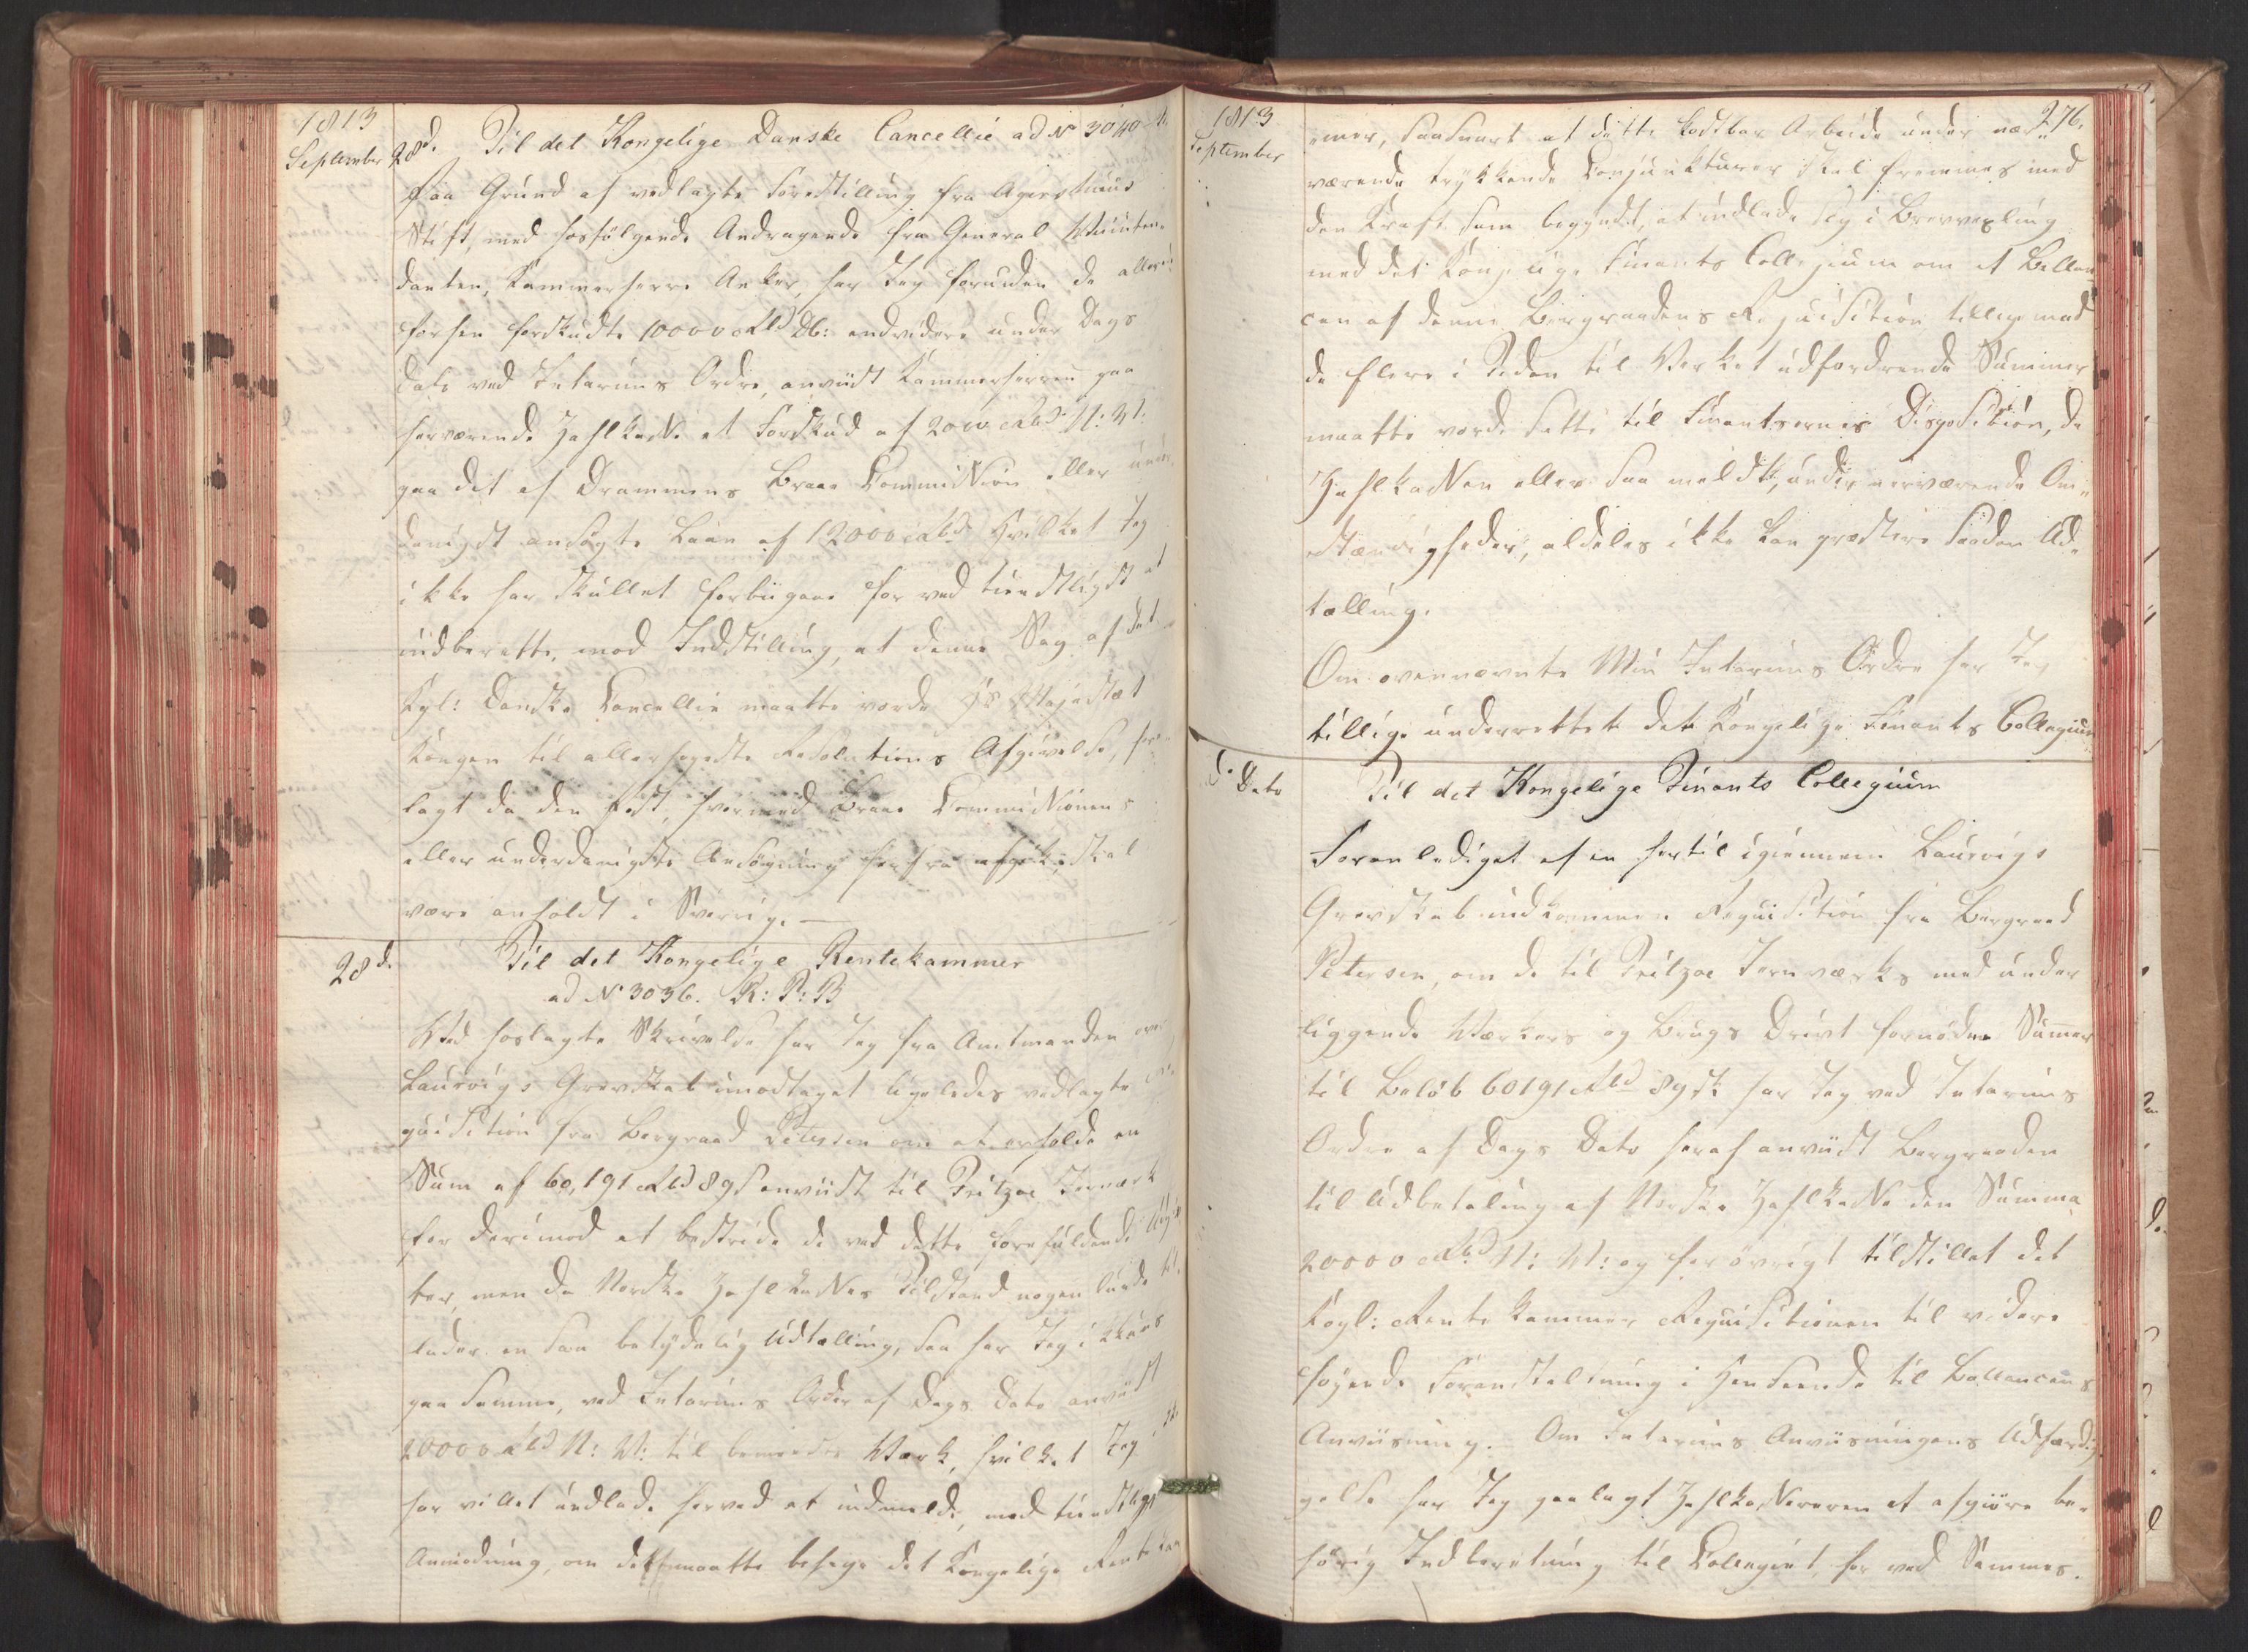 1813
September 28d. Til det Kongelige Danske Cancellie ad No 3040
Paa Grund af vedlagte Forestilling fra Agershuus
Stift, med hosfölgende Andragende fra General Krigs
danten, Kammerherre Anker, har Jeg foruden de alle
forhen forskudte 10000 Rbd D: endvidere under Dags
Dato ved Interims Ordre, anviist Kammerherren paa
herværende Zahlkasse et Forskud af 2000 Rbd N: V:
paa det af Drammens Brand Commission aller under
danigst ansögte Laan af 12000 Rbd hvilket Jeg
ikke har skullet forbigaae herved tienstligst at
indberette, med Indstilling, at denne Sag af det
Kgl: Danske Cancellie maatte vorde Hs Majestæt
Kongen til allerhöyeste Resolutions Afgivelse, fore
lagt da den Post, hvormed Brand Commissionens
aller underdanigste Ansögning herfra afgik, skal
være anholdt i Sverrig. —
28d. Til det Kongelige Rentekammer
ad No 3036. R: P: B
Ved hoslagte Skrivelse har Jeg fra Amtmanden over
Laurvigs Grevskab modtaget ligeledes vedlagte Re
quisition fra Bergraad Petersen om at erholde en
Sum af 60,191 Rbd 89 s anviist til Fritzoe Jernværk
for derimod at bestride de ved dette forefaldende Udgif
ter, men da Norske Zahlkasses Tilstand nogenlunde til
lader en saa betydelig Udtælling, saa har Jeg ikkuns
paa samme, ved Interims Ordre af Dags Dato anviist
20000 Rbd N: V: til bemeldte Værk, hvilket Jeg ik
har villet undlade herved at indmelde, med tienstligst
Anmodning, om det maatte behage det Kongelige Rentekam
1813
September
276.
mer, saasnart at dette kostbar Arbeide under nær
værende trykkende Conjunkturer skal fremmes med
den Kraft som begyndt, at indlade sig i Brevvexling
med det Kongelige Finants Collegium om at Ballan
cen af denne Bergraadens Requisition tilligemed
de flere i Tiden til Værket udfordrende Summer
maatte vorde satte til Finantsernes Disposition, da
Zahlkassen eller saa meldt, under nærværende Om„
stændigheder, aldeles ikke kan præstere saadan Ud„
tælling.
Om ovennævnte Min Interims Ordre har Jeg
tillige underrettet det Kongelige Finants Collegium
d. Dato Til det Kongelige Finants Collegium
Foranlediget af en hertil igiennem Laurvigs
Grevskab indkommen Requisition fra Bergraad
Petersen, om de til Fritzoe Jernværks med under
liggende Værkers og Brugs Drivt fornödne Summer
til Belöb 60191 Rbd 89 sk har Jeg ved Interims
Ordre af Dags Dato heraf anviist Bergraaden
til Udbetaling af Norske Zahlkasse den Summa
20000 Rbd N: V: og forövrigt tilstillet det
Kogl: Rente kammer Requisitionen til videre
föyende Foranstaltning i Henseende til Ballancens
Anviisning. Om Interims Anviisningens Udfærdi„
gelse har Jeg paalagt Zahlkassereren at afgiöre be„
hörig Indberetning til Collegiet, herved Sammes.